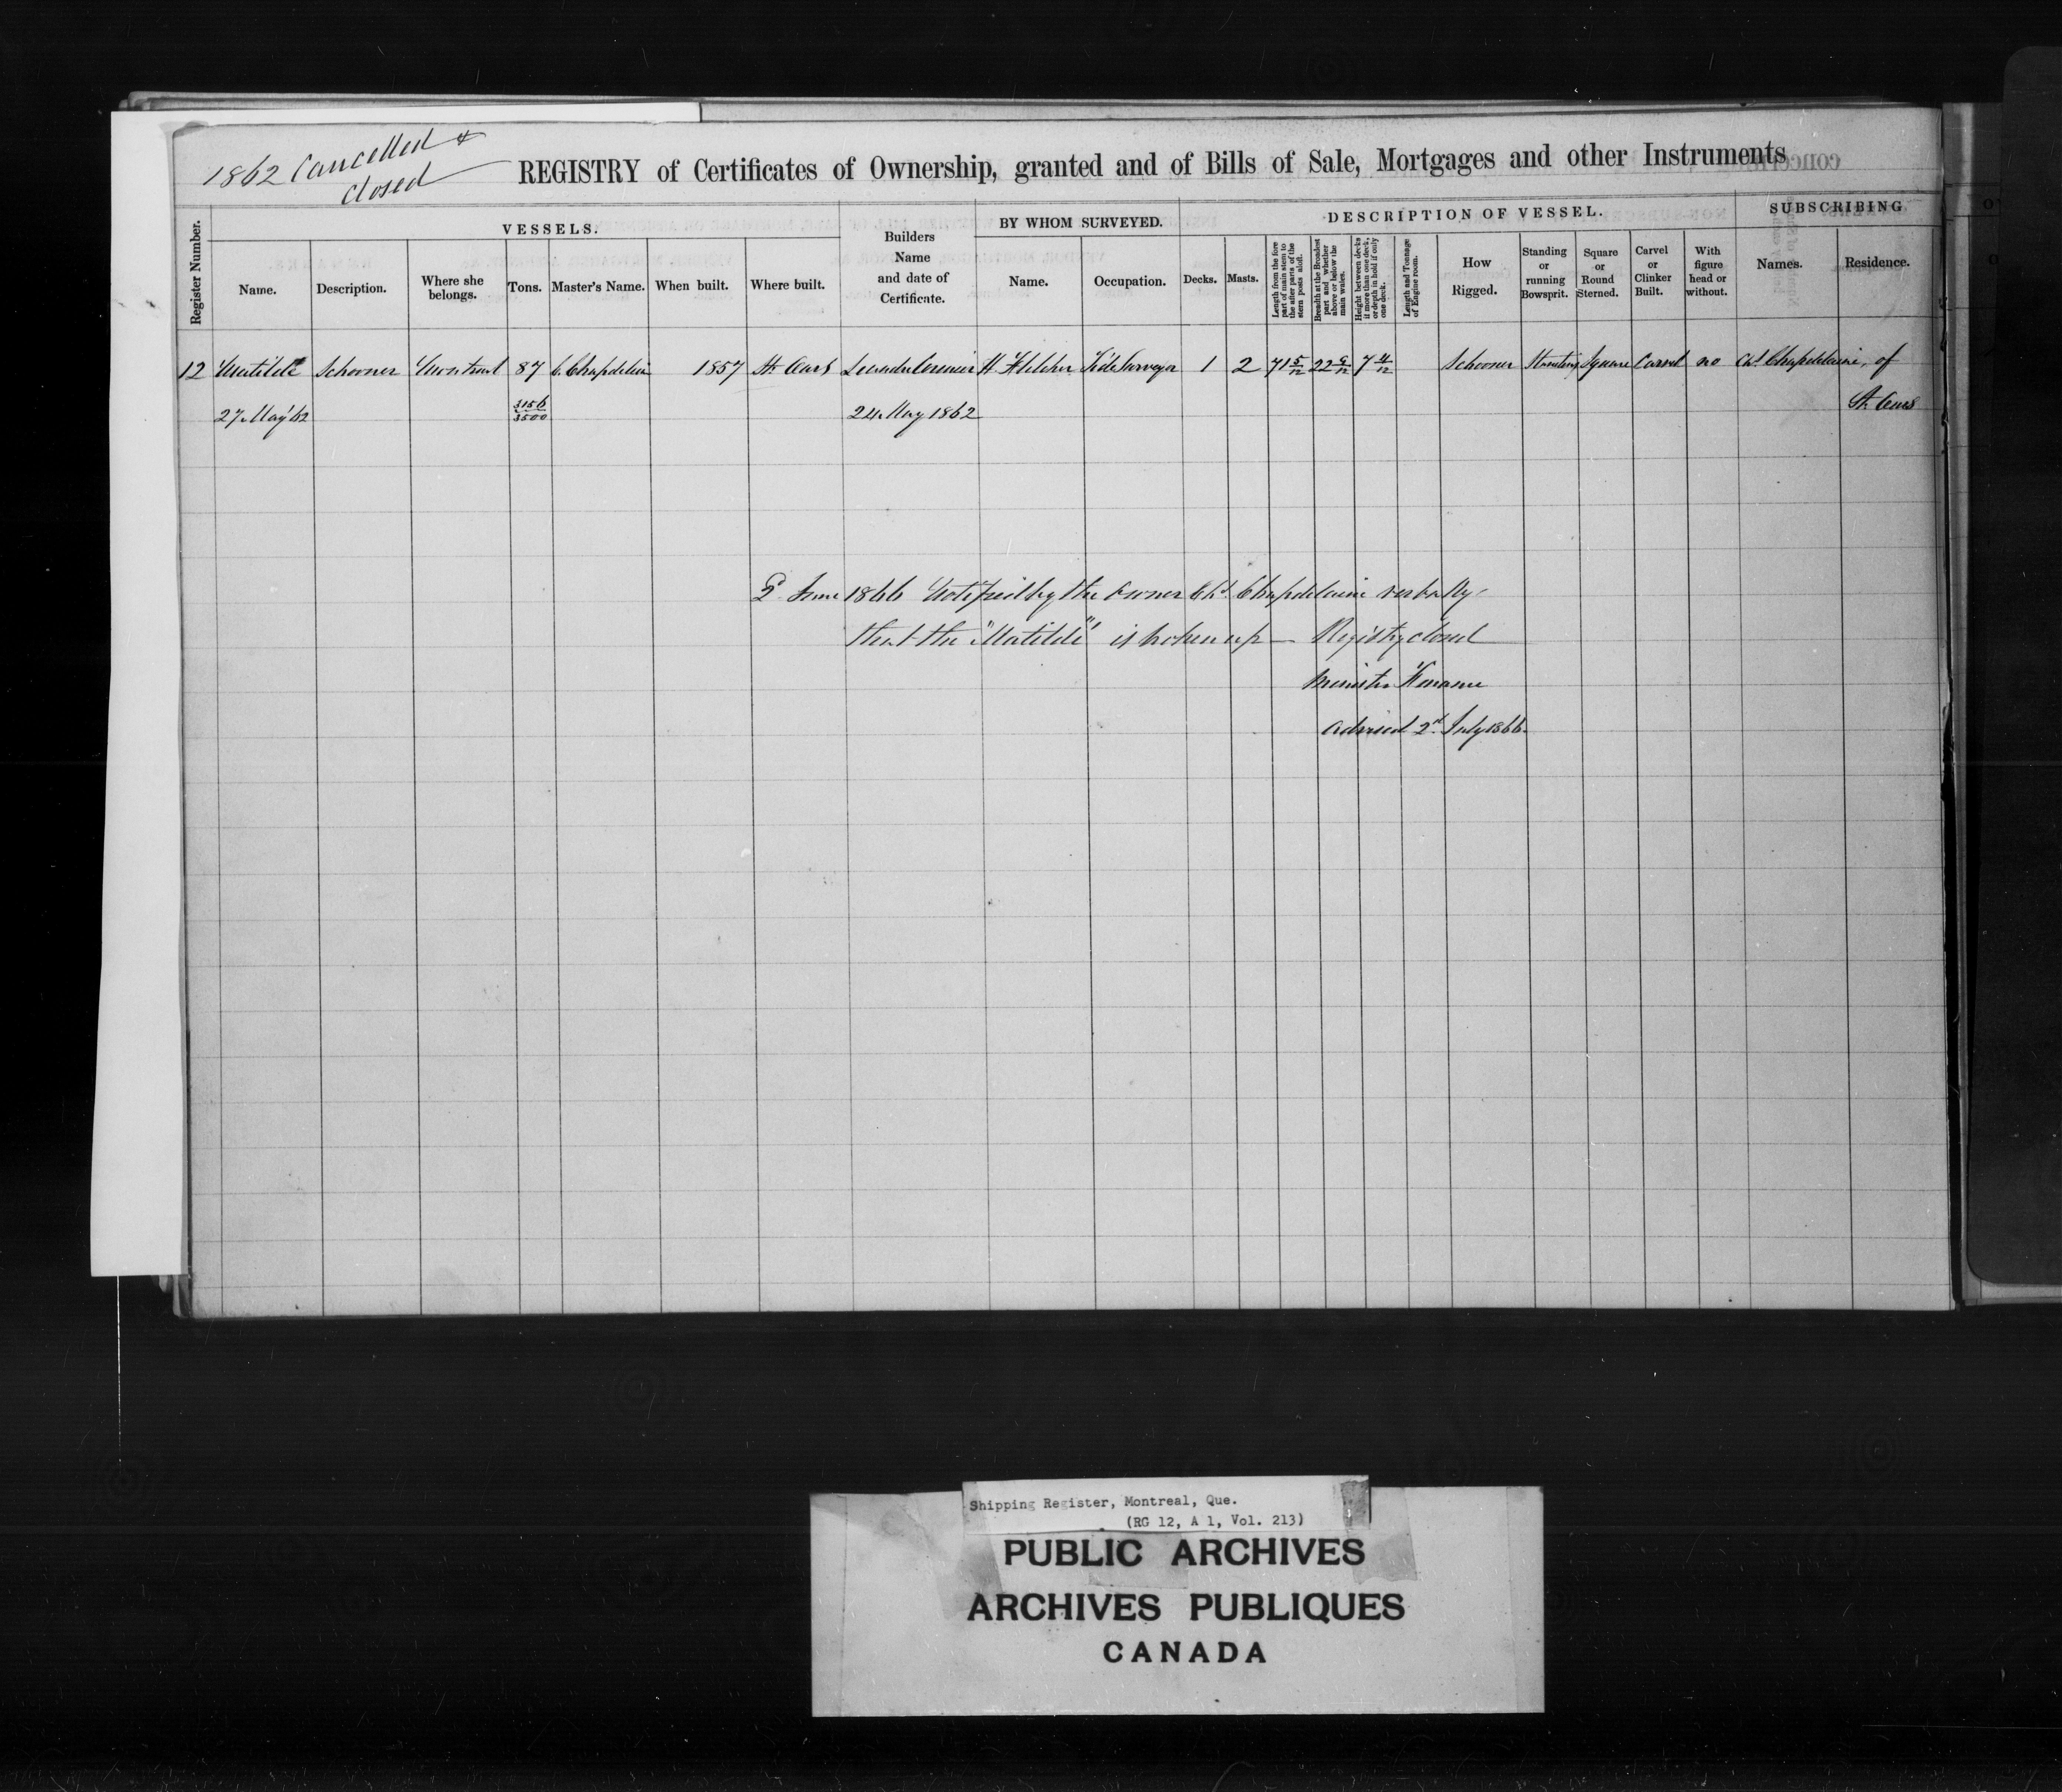 1862 Cancelled &
Closed
REGISTRY of Certificates of Ownership, granted and of Bills of Sale, Mortgages and other Instruments
Register Number.
VESSELS.
Name.
Description.
Where she belongs.
Tons.
Master's Name.
When built.
Where built.
Builders Name and date of Certificate.
BY WHOM SURVEYED.
Name.
Occupation.
DESCRIPTION OF VESSEL.
Decks.
Masts.
Length from the fore part of main stem to the after parts of the stern posts aloft.
Breadth at the Broadest part and whether above or below the main wales.
Height between decks if more than one deck, or depth in hold if only one deck.
Length and Tonnage of Engine room.
How Rigged.
Standing or running Bowsprit.
Square or Round Sterned.
Carvel or Clinker Built.
With figure head or without.
SUBSCRIBING
Names.
Residence.
12 Matilde Schooner Montreal 87 C. Chapdelaine 1857 St. Ours H. Fletcher Tide Surveyor 1 2 71 5/12 22 9/12 7 4/12 Schooner Standing Square Carvel no Chs. Chapdelaine, of
27 May 62 3156/3500 24 May 1862 St. Ours
2 June 1866 Notified by the owner Chs. Chapdelaine verbally
that the "Matilde" is broken up — Registry closed
Minister Finance
advised 2d. July 1866.
Shipping Register, Montreal, Que.
(RG 12, A 1, Vol. 213)
PUBLIC ARCHIVES
ARCHIVES PUBLIQUES
CANADA